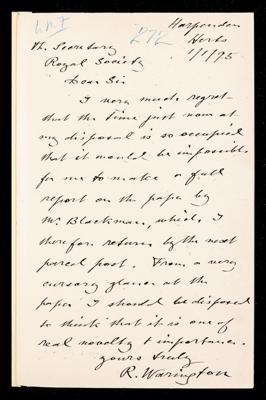 272
Harpenden
Herts
1/1/95
The Secretary
Royal Society
Dear Sir
I very much regret
that the time just now at
my disposal is so occupied
that it would be impossible
for me to make a full
report on the paper by
Mr Blackman, which I
therefore return by the next
parcel post. From a very
cursory glance at the
paper I should be disposed
to think that it is one of
real novelty & importance.
yours truly
R. Warington